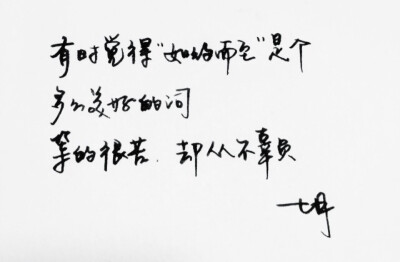 有时觉得“如约而至”是个
多么美好的词
等的很苦.却从不辜负
七月